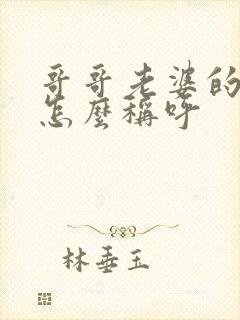 哥哥老婆的
怎麼稱呼
林垂玉